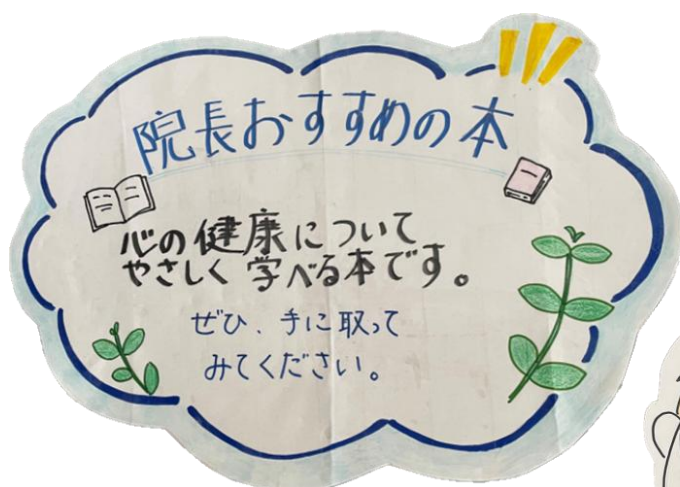 院長おすすめの本
心の健康について
やさしく学べる本です。
ぜひ、手に取って
みてください。